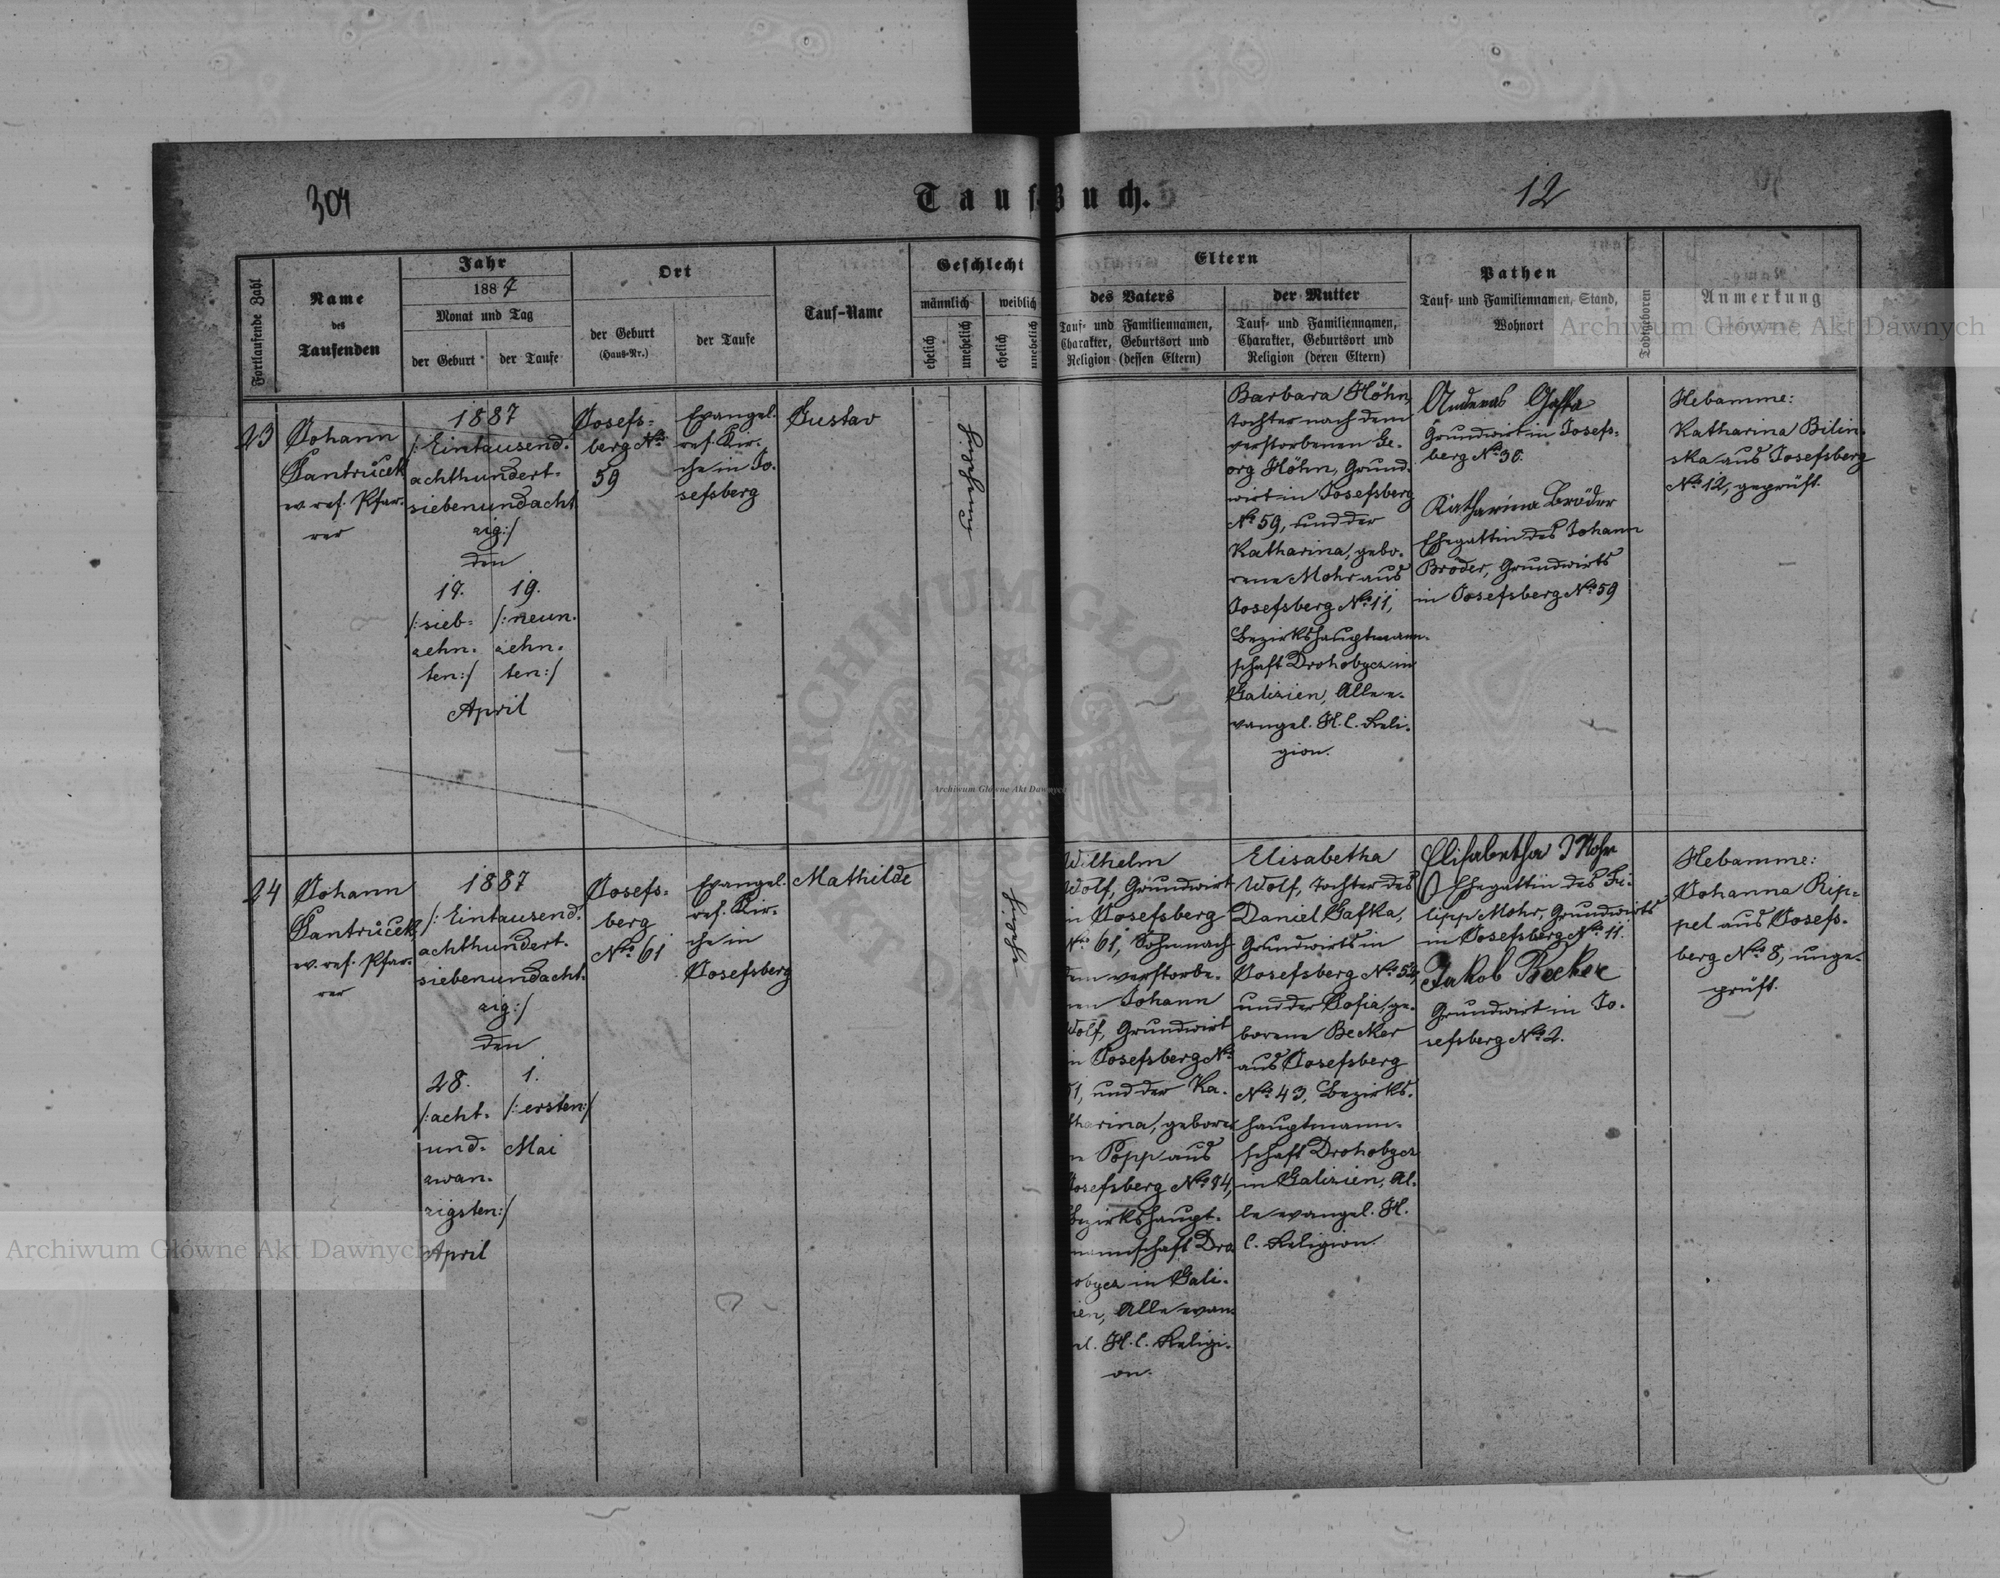 304
12
Tauf-Buch.
Fortlaufende Zahl
Name
des
Taufenden
Jahr
1887
Monat und Tag
der Geburt
der Taufe
Ort
der Geburt
(Haus-Nr.)
der Taufe
Tauf-Name
Geschlecht
männlich
weiblich
ehelich
unehelich
ehelich
unehelich
Eltern
des Vaters
Tauf- und Familiennamen,
Charakter, Geburtsort und
Religion (dessen Eltern)
der Mutter
Tauf- und Familiennamen,
Charakter, Geburtsort und
Religion (deren Eltern)
Pathen
Tauf- und Familiennamen, Stand,
Wohnort
Todtgeboren
Anmerkung
23
Johann
Santrůček
ev. ref. Pfar-
rer
1887
/: Eintausend-
achthundert-
siebenundacht
zig:/
den
17.
/:sieb-
zehn-
ten:/
19.
/:neun-
zehn-
ten:/
April
Josefs-
berg No
59
Evangel.
ref. Kir-
che in Jo-
sefsberg
Gustav
unehelich
Barbara Höhn,
Tochter nach dem
verstorbenen Ge-
org Höhn, Grund-
wirt in Josefsberg
No 59, und der
Katharina, gebo-
rene Mohr aus
Josefsberg No 11,
Bezirkshauptmann-
schaft Drohobycz in
Galizien, Alle e-
vangel. H. C. Reli-
gion.
Andreas Gafka
Grundwirt in Josefs-
berg No 38.
Katharina Bröder
Ehegattin des Johann
Bröder, Grundwirts
in Josefsberg No 59
Hebamme:
Katharina Bilin-
ska aus Josefsberg
No 12, geprüft.
24
Johann
Santrůček,
ev. ref. Pfar-
rer
1887
/: Eintausend-
achthundert-
siebenundacht-
zig:/
den
28.
/:acht-
und-
zwan-
zigsten:/
April
1.
/:ersten:/
Mai
Josefs-
berg
No 61
Evangel.
ref. Kir-
che in
Josefsberg
Mathilde
ehelich
Wilhelm
Wolf, Grundwirt
in Josefsberg
No 61, Sohn nach
dem verstorbe-
nen Johann
Wolf, Grundwirt
in Josefsberg No
61, und der Ka-
tharina, gebore-
ne Popp aus
Josefsberg No 84,
Bezirkshaupt-
mannschaft Dro
obycz in Gali-
ien, Alle evan
el. H. C. Religi-
on.
Elisabetha
Wolf, Tochter des
Daniel Gafka,
Grundwirts in
Josefsberg No 52,
und der Sofia, ge-
borene Becker
aus Josefsberg
No 43, Bezirks-
hauptmann-
schaft Drohobycz
in Galizien, Al-
le evangel. H.
C. Religion.
Elisabetha Mohr
Ehegattin des Fi-
lipp Mohr, Grundwirts
in Josefsberg No 11.
Jakob Becker
Grundwirt in Jo-
sefsberg No 2.
Hebamme:
Johanna Rip-
pel aus Josefs-
berg No 8, unge-
prüft.
Archiwum Główne Akt Dawnych
Archiwum Główne Akt Dawnych
Archiwum Główne Akt Dawnych
ARCHIWUM GŁÓWNE AKT DAWNYCH